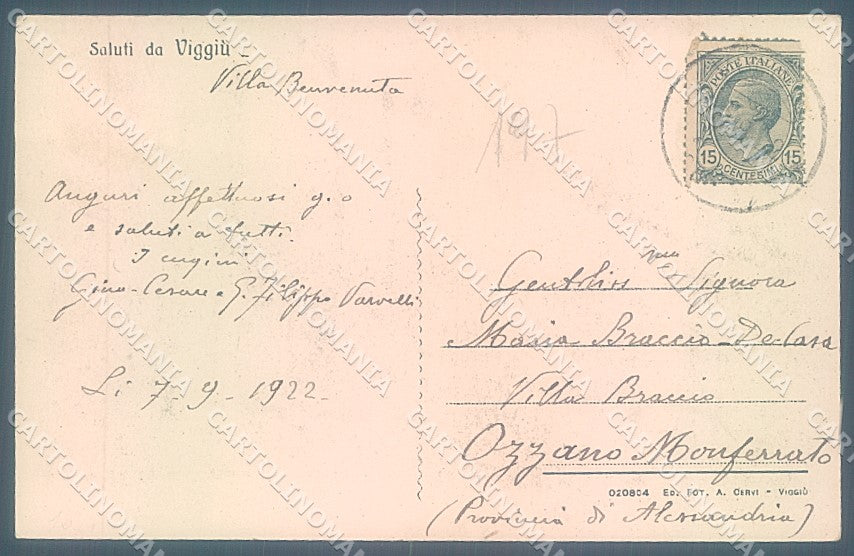 Saluti da Viggiù -
Villa Benvenuta
Auguri affettuosi
e saluti a tutti.
I cugini
Gino - Cesare e G. Filippo Varvelli
Li 7 - 9 - 1922 -
POSTE ITALIANE
15 15
CENTESIMI
Gentiliss ma Signora
Maria Braccio - De-Casa
Villa Braccio
Ozzano Monferrato
020804 ED. FOT. A. CERVI - VIGGIÙ
(Provincia di Alessandria)
CARTOLINOMANIA